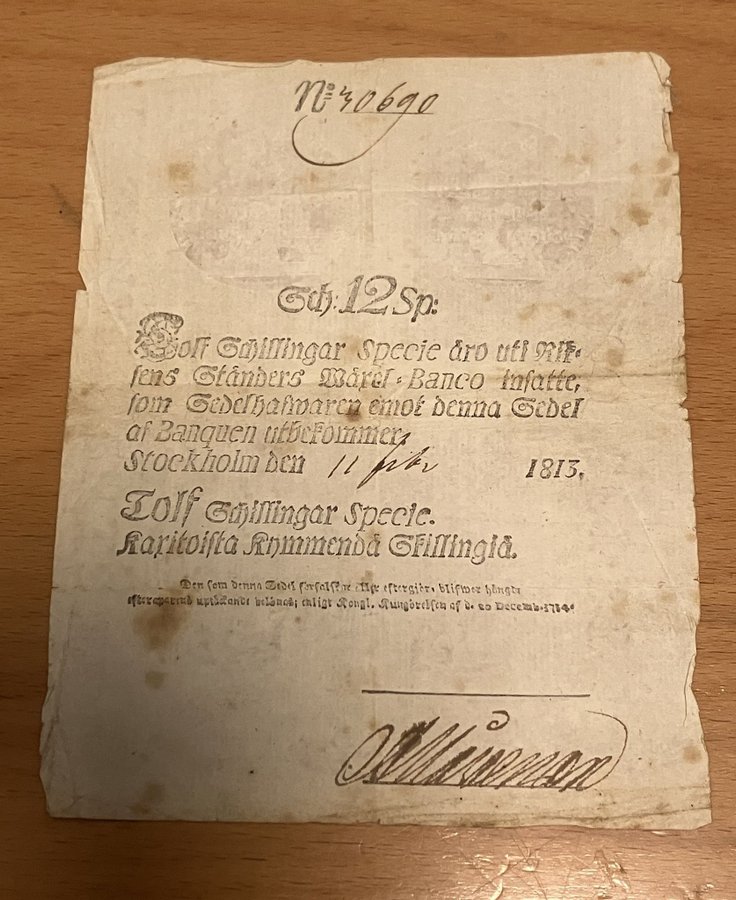 N⁰ 30690
Sch: 12 Sp:
Tolf Schillingar Specie äro uti Rik-
sens Ständers Wäxel-Banco insatte,
som Sedelhafwaren emot denna Sedel
af Banquen utbekommer,
Stockholm den 11 febr 1813.
Tolf Schillingar Specie.
Kaxitoista Kymmendä Skillingiä.
Den som denna Sedel förfalskar eller eftergiör, blifwer hängd;
efterapand uptäckande belönas; enligt Kongl. Kungörelsen af d. 20 Decemb.